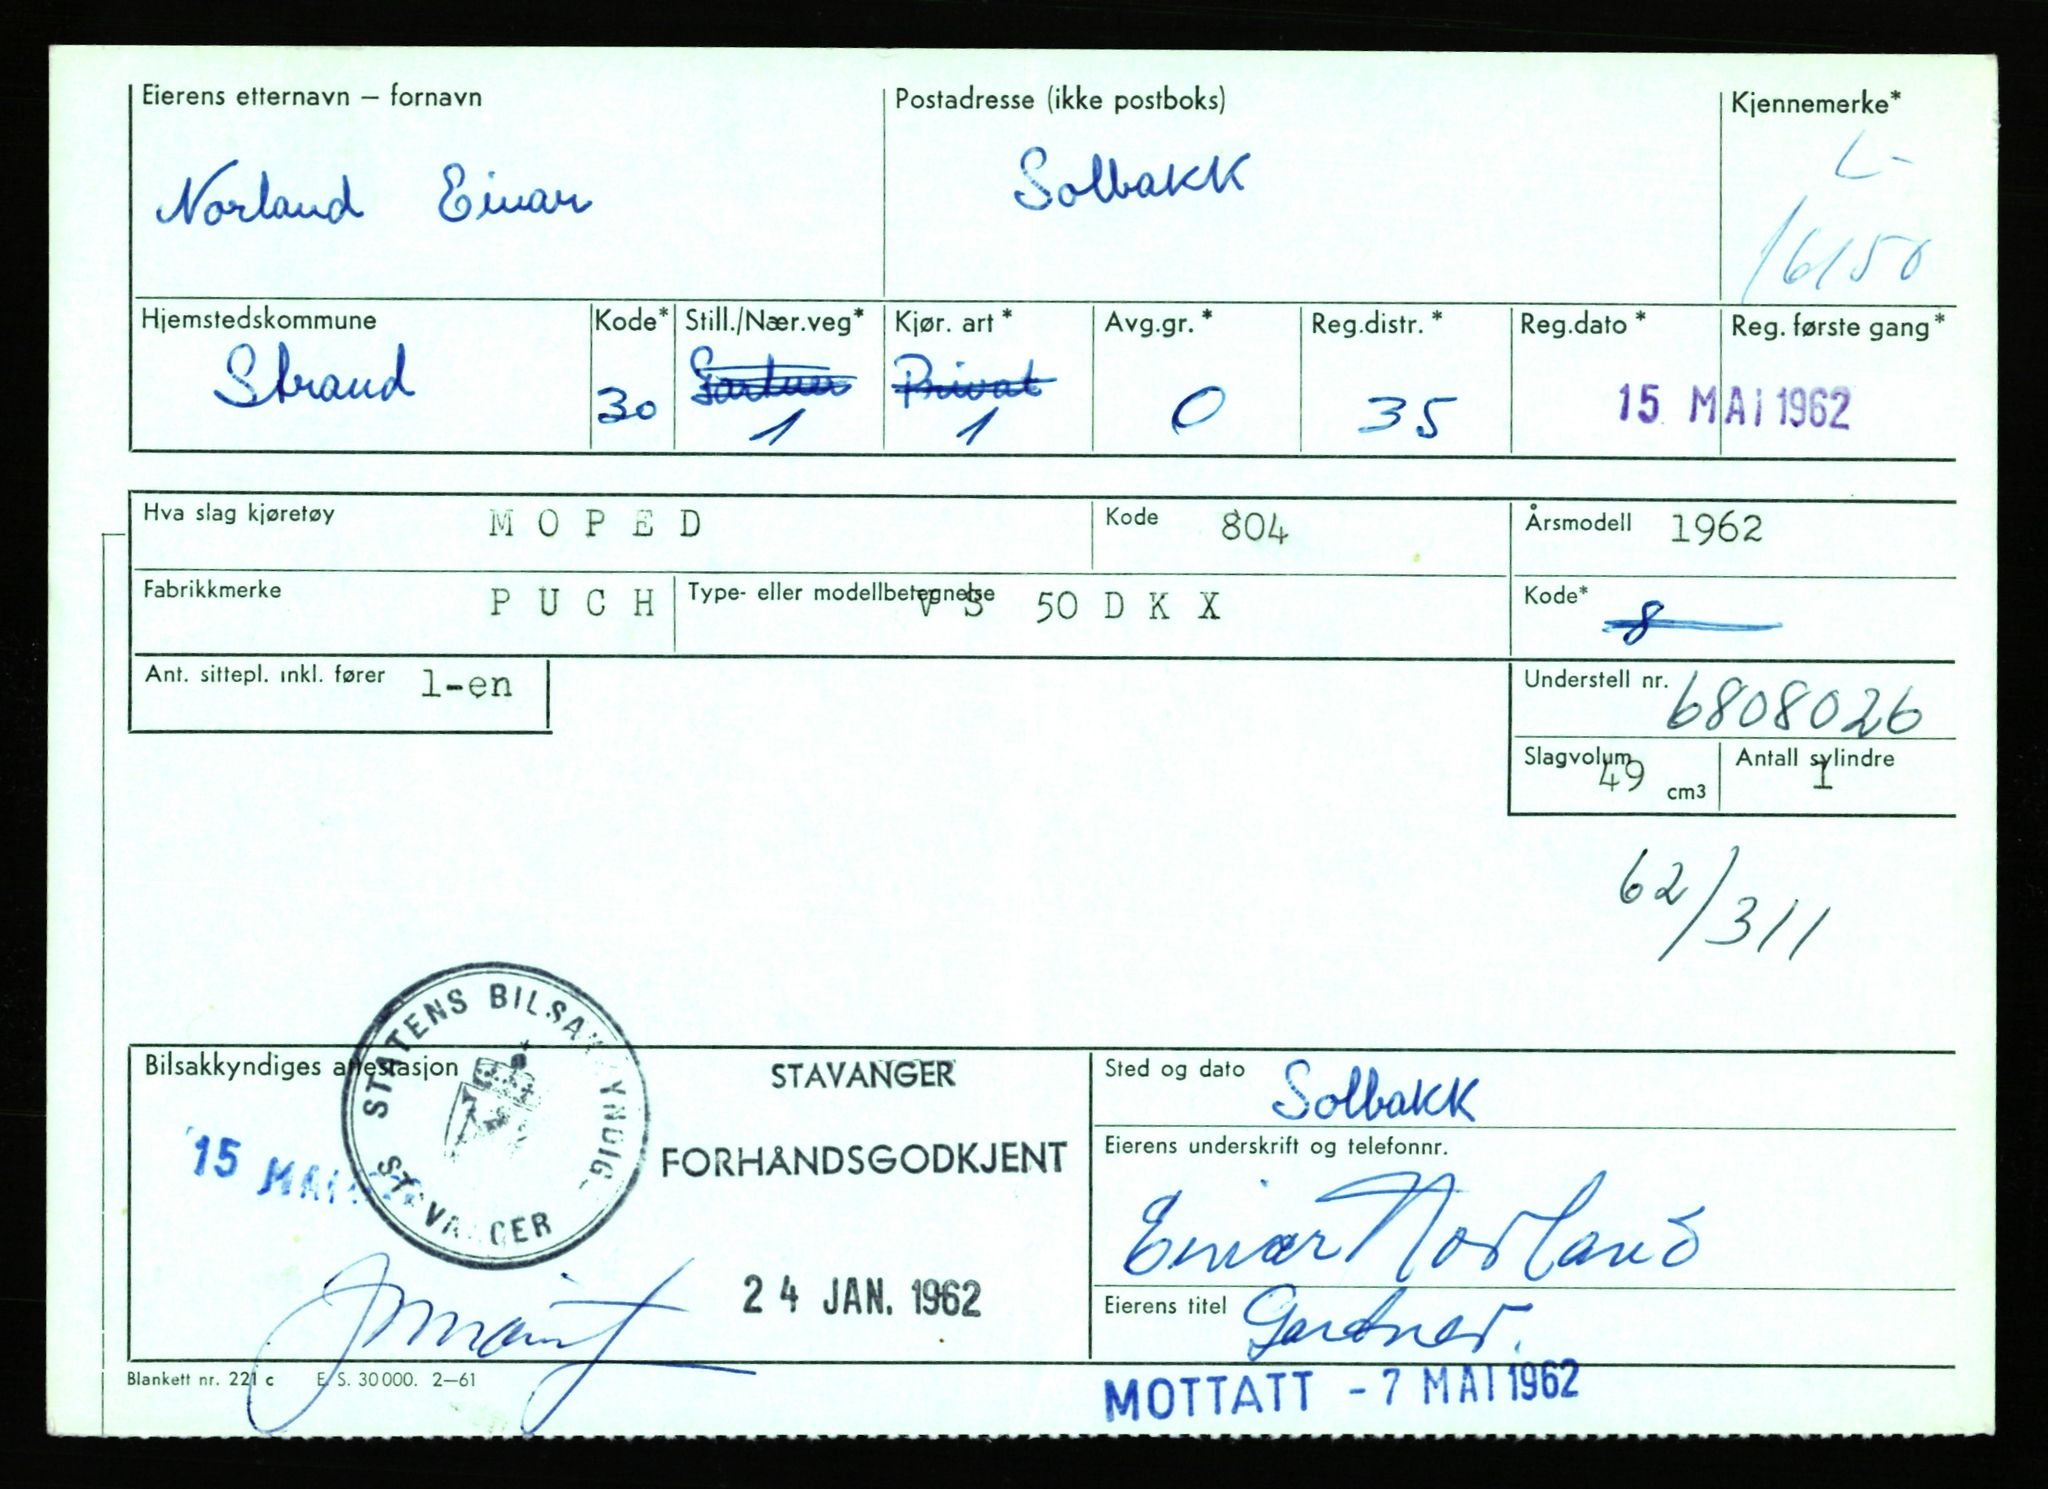 Eierens etternavn – fornavn
Norland Einar
Postadresse (ikke postboks)
Solbakk
Kjennemerke*
L-
16150
Hjemstedskommune
Strand
Kode*
30
Still./Nær.veg*
Gartner
1
Kjør. art*
Privat
1
Avg.gr.*
0
Reg.distr.*
35
Reg.dato*
Reg. første gang*
15 MAI 1962
Hva slag kjøretøy MOPED
Kode 804
Årsmodell 1962
Fabrikkmerke PUCH
Type- eller modellbetegnelse VS 50 DKX
Kode*
8
Ant. sittepl. inkl. fører 1-en
Understell nr. 6808026
Slagvolum 49 cm3
Antall sylindre 1
62/311
Bilsakkyndiges attestasjon
STATENS BILSAKKYNDIG.
STAVANGER
15 MAI
STAVANGER
FORHÅNDSGODKJENT
24 JAN. 1962
Sted og dato Solbakk
Eierens underskrift og telefonnr.
Einar Norland
Eierens titel Gartner.
Blankett nr. 221 c E. S. 30 000. 2–61
MOTTATT - 7 MAI 1962